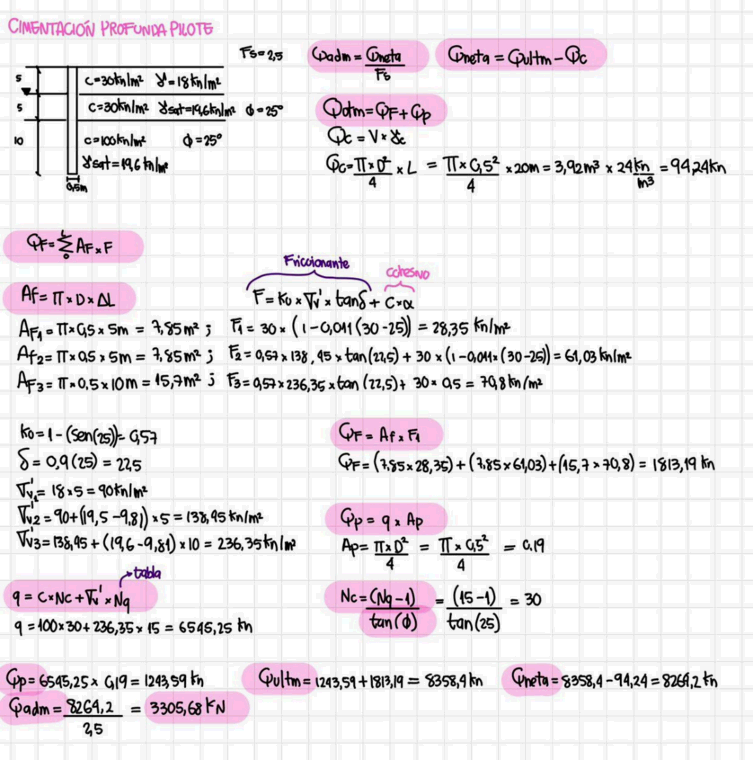 CIMENTACIÓN PROFUNDA PILOTE
Fs=2,5
Qadm = Qneta / Fs
Qneta = Qultm - Qc
5 C=30kn/m² γ=18kn/m²
5 C=30kn/m² γsat=19,6kn/m² φ=25°
10 C=100kn/m² φ=25°
γsat=19,6 kn/m²
0,5m
Qdm = QF + Qp
Qc = V × γc
Qc = π×D²/4 × L = π×0,5²/4 × 20m = 3,92m³ × 24 kn/m³ = 94,24kn
QF = L Σ 0 AF × F
Friccionante
cohesivo
Af = π × D × ΔL
F = Ko × σv' × tanδ + C×α
AF1 = π×0,5 × 5m = 7,85m² ; F1 = 30 × (1-0,011(30-25)) = 28,35 kn/m²
Af2 = π×0.5 × 5m = 7,85m² ; F2 = 0,57×138,95×tan(22,5) + 30×(1-0,011×(30-25)) = 61,03 kn/m²
AF3 = π×0.5 × 10m = 15,7m² ; F3 = 0,57×236,35×tan(22,5) + 30×0,5 = 70,8 kn/m²
Ko = 1 - (sen(25)) = 0,57
δ = 0,9(25) = 22,5
σv'1 = 18×5 = 90kn/m²
σv'2 = 90+(19,5-9,81)×5 = 138,95 kn/m²
σv'3 = 138,95 + (19,6-9,81)×10 = 236,35 kn/m²
QF = Af × F1
QF = (7,85×28,35)+(7,85×61,03)+(15,7×70,8) = 1813,19 kn
Qp = q × Ap
Ap = π×D²/4 = π×0,5²/4 = 0.19
tabla
q = C×Nc + σv' × Nq
q = 100×30 + 236,35×15 = 6545,25 kn
Nc = (Nq-1)/tan(φ) = (15-1)/tan(25) = 30
Qp = 6545,25 × 0,19 = 1243,59 kn
Qultm = 1243,59 + 1813,19 = 8358,4kn
Qneta = 8358,4 - 94,24 = 8264,2 kn
Qadm = 8264,2 / 2,5 = 3305,68 kN